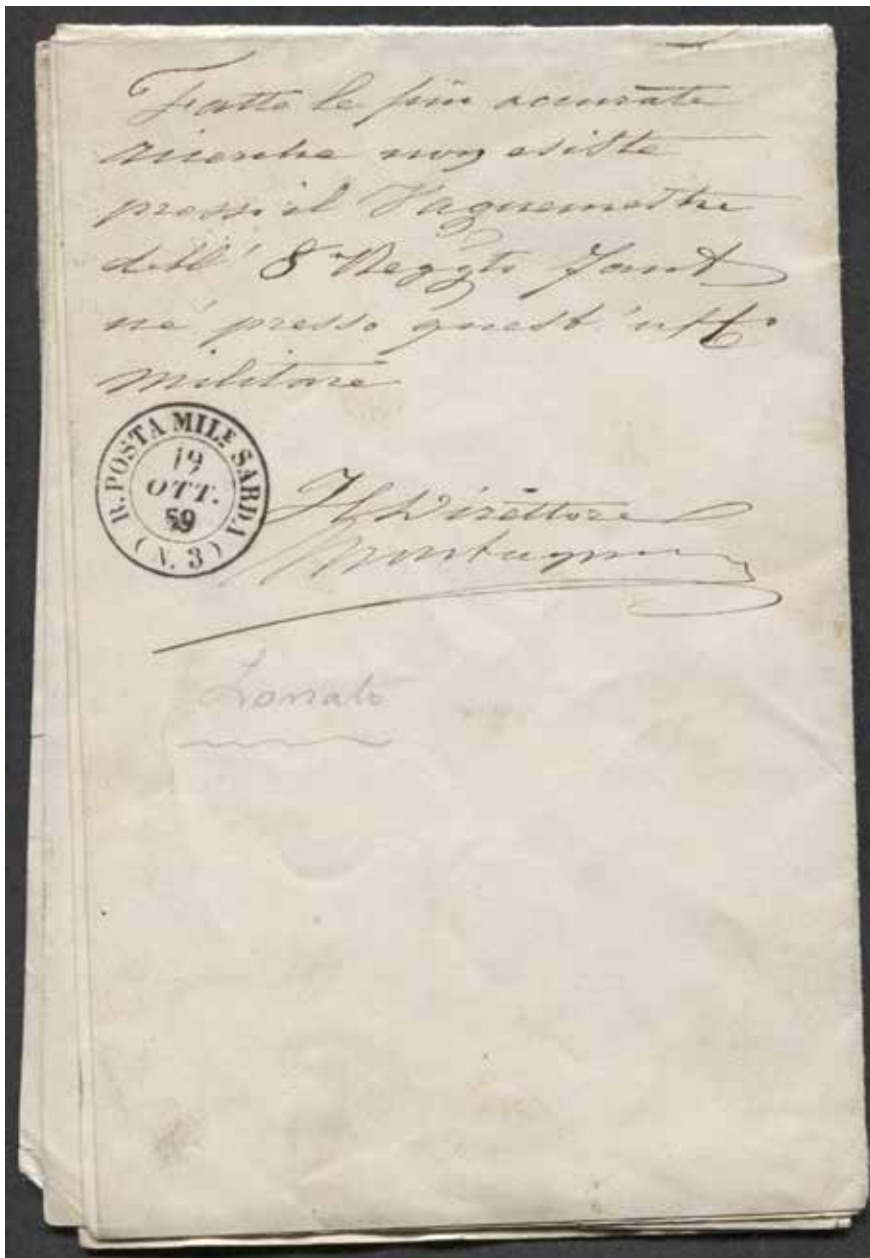 Fatte le più accurate
ricerche non esiste
presso il Vaguemestre
dell' 8 Reggto Fant
nè presso quest' uffo
militare
R. POSTA MILE SARDA
19
OTT.
59
(N. 3)
Il Direttore
Lonato